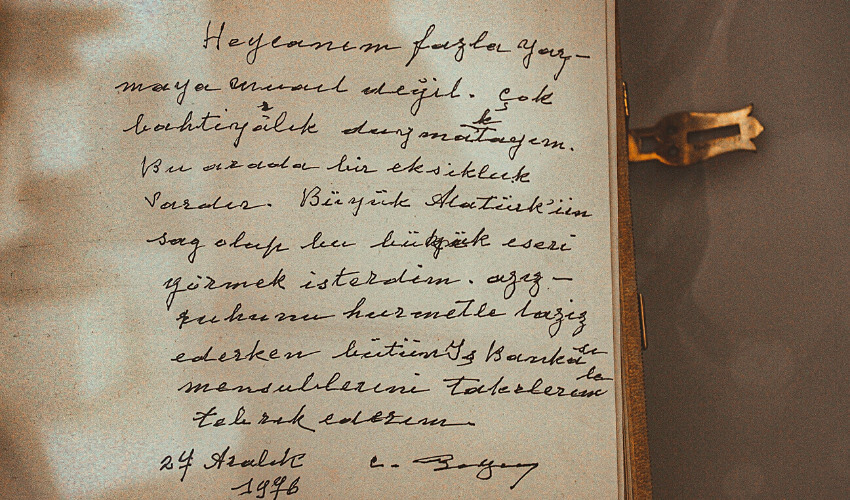 Heycanım fazla yaz-
maya musait değil. Çok
bahtiyârlık duymaktayım.
Bu arada bir eksikluk
vardır. Büyük Atatürk'ün
sag olup bu büyük eseri
görmek isterdim. aziz-
ruhunu hurmetle taziz
ederken bütün İş Bankası
mensublerini takdirlerimle
tebrik ederim.
27 Aralık c.
1976